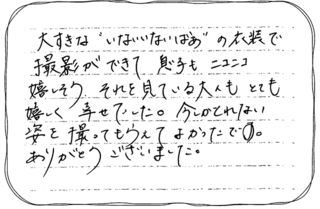 大すきな "いないいないばあ" の衣装で
撮影ができて 息子も ニコニコ
嬉しそう、それを見ている大人も とても
嬉しく 幸せでした。今しかとれない
姿を 撮ってもらえて よかったです。
ありがとう ございました。